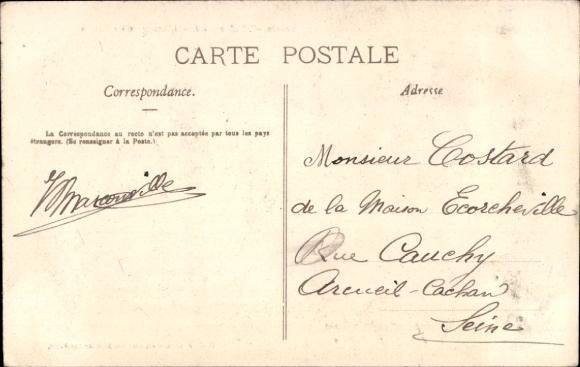 CARTE POSTALE
Correspondance.
Adresse
La Correspondance au recto n'est pas acceptée par tous les pays
étrangers. (Se renseigner à la Poste.)
Monsieur Costard
de la Maison Ecorcheville
Rue Cauchy
Arcueil-Cachan
Seine